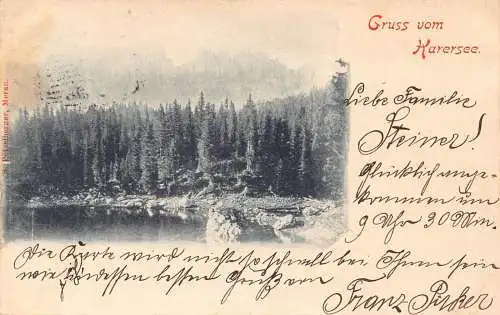 Gruss vom
Karersee.
Liebe Familie
Steiner!
Glücklich ange-
kommen um
9 Uhr 30 Min.
Die Karte wird nicht so schnell bei Ihnen sein
wie dessen besten Gruß von
Franz
Meran.